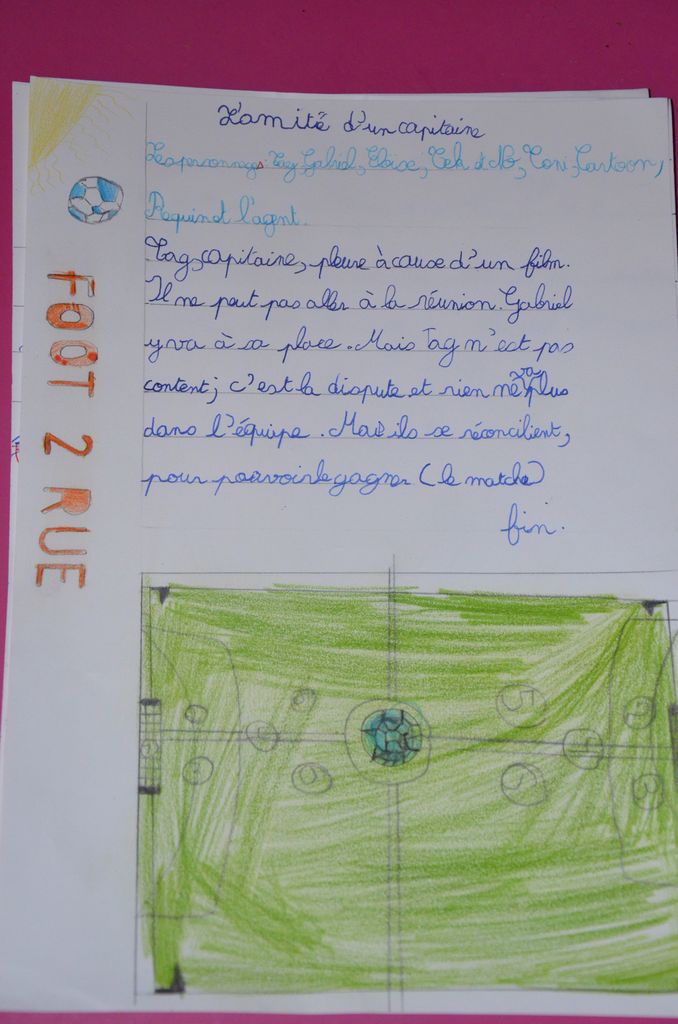 L'amitié d'un capitaine
Les personnages: Tag, Gabriel, Eloïse, Tek et No, Toni, Cartoon,
Requin et l'agent.
Tag, capitaine, pleure à cause d'un film.
Il ne peut pas aller à la réunion. Gabriel
y va à sa place. Mais Tag n'est pas
content; c'est la dispute et rien ne va plus
dans l'équipe. Mais ils se réconcilient,
pour pouvoir le gagner (le match)
fin.
FOOT 2 RUE